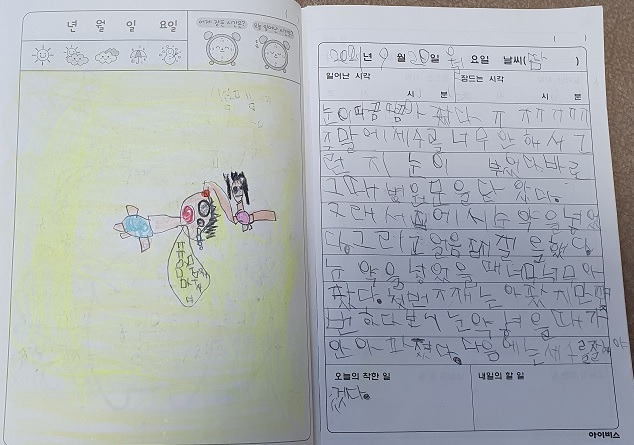 년 월 일 요일
어제 잠든 시간은?
오늘 일어난 시간은?
2021년 9월 20일 월요일 날씨( )
일어난 시각 잠드는 시각
시 분 시 분
눈이 따끔따끔
주말에 세수를 너무 안 해서 그
런지 눈이 부었다 바로
그때 병원 문을 닫았다.
그래서 집에서 수약을넣었
다.그리고 얼음 찜질을했다.
눈 약을 넣었을 때 너무너무 아
팠다. 첫번째는 아팠지만
번 하다보니 눈약 넣을 때가
안 아파졌다. 다음에는 세수를잘해야
오늘의 착한 일 내일의 할 일
겠다.
아이비스